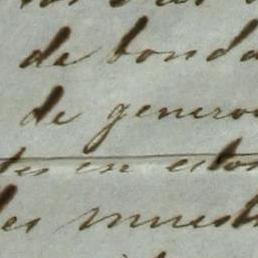 de bonda
de genero
tes en estos
les muest